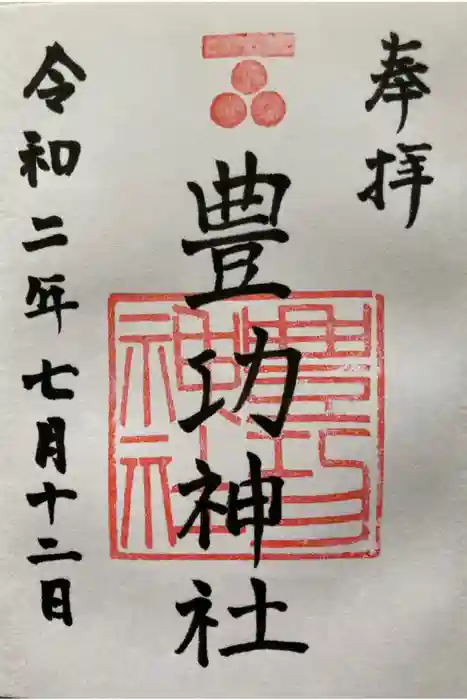 奉拝
豊功神社
豊功神社
令和二年七月十二日